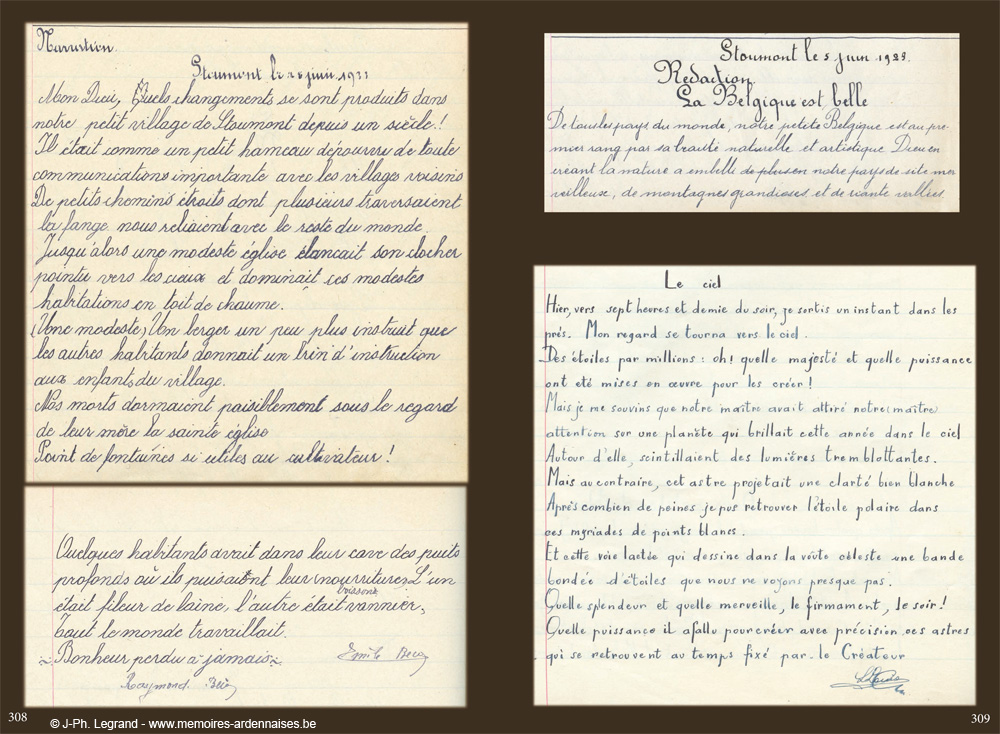 Narration.
Stoumont le 26 juin 1933
Mon Dieu, Quels changements se sont produits dans
notre petit village de Stoumont depuis un siècle.!
Il était comme un petit hameau dépourvu de toute
communications importante avec les villages voisins
De petits chemins étroits dont plusieurs traversaient
la fange nous reliaient avec le reste du monde.
Jusqu'alors une modeste église élancait son clocher
pointu vers les cieux et dominait ces modestes
habitations en toit de chaume.
(Une modeste) Un berger un peu plus instruit que
les autres habitants donnait un brin d'instruction
aux enfants du village.
Nos morts dormaient paisiblement sous le regard
de leur mère la sainte église
Point de fontaines si utiles au cultivateur!
Quelques habitants avait dans leur cave des puits
profonds où ils puisaient leur (nourriture) L'un
boisson
était fileur de laine, l'autre était vannier,
Tout le monde travaillait.
~ Bonheur perdu à jamais ~
Emile
Raymond
308
© J-Ph. Legrand - www.memoires-ardennaises.be
Stoumont le 5 juin 1928.
Redaction
La Belgique est belle
De tous les pays du monde, notre petite Belgique est au pre-
mier rang par sa beauté naturelle et artistique Dieu en
créant la nature a embelle de plus en notre pays de site mer
veilleuse, de montagnes grandioses et de riante vallées.
Le ciel
Hier, vers sept heures et demie du soir, je sortis un instant dans les
prés. Mon regard se tourna vers le ciel.
Des étoiles par millions : oh! quelle majesté et quelle puissance
ont été mises en œuvre pour les créer!
Mais je me souvins que notre maître avait attiré notre (maître)
attention sur une planète qui brillait cette année dans le ciel
Autour d'elle, scintillaient des lumières tremblottantes.
Mais au contraire, cet astre projetait une clarté bien blanche
Après combien de peines je pus retrouver l'étoile polaire dans
ces myriades de points blancs.
Et cette voie lactée qui dessine dans la voûte céleste une bande
bondée d'étoiles que nous ne voyons presque pas.
Quelle splendeur et quelle merveille, le firmament, le soir!
Quelle puissance il a fallu pour créer avec précision ces astres
qui se retrouvent au temps fixé par le Créateur
309